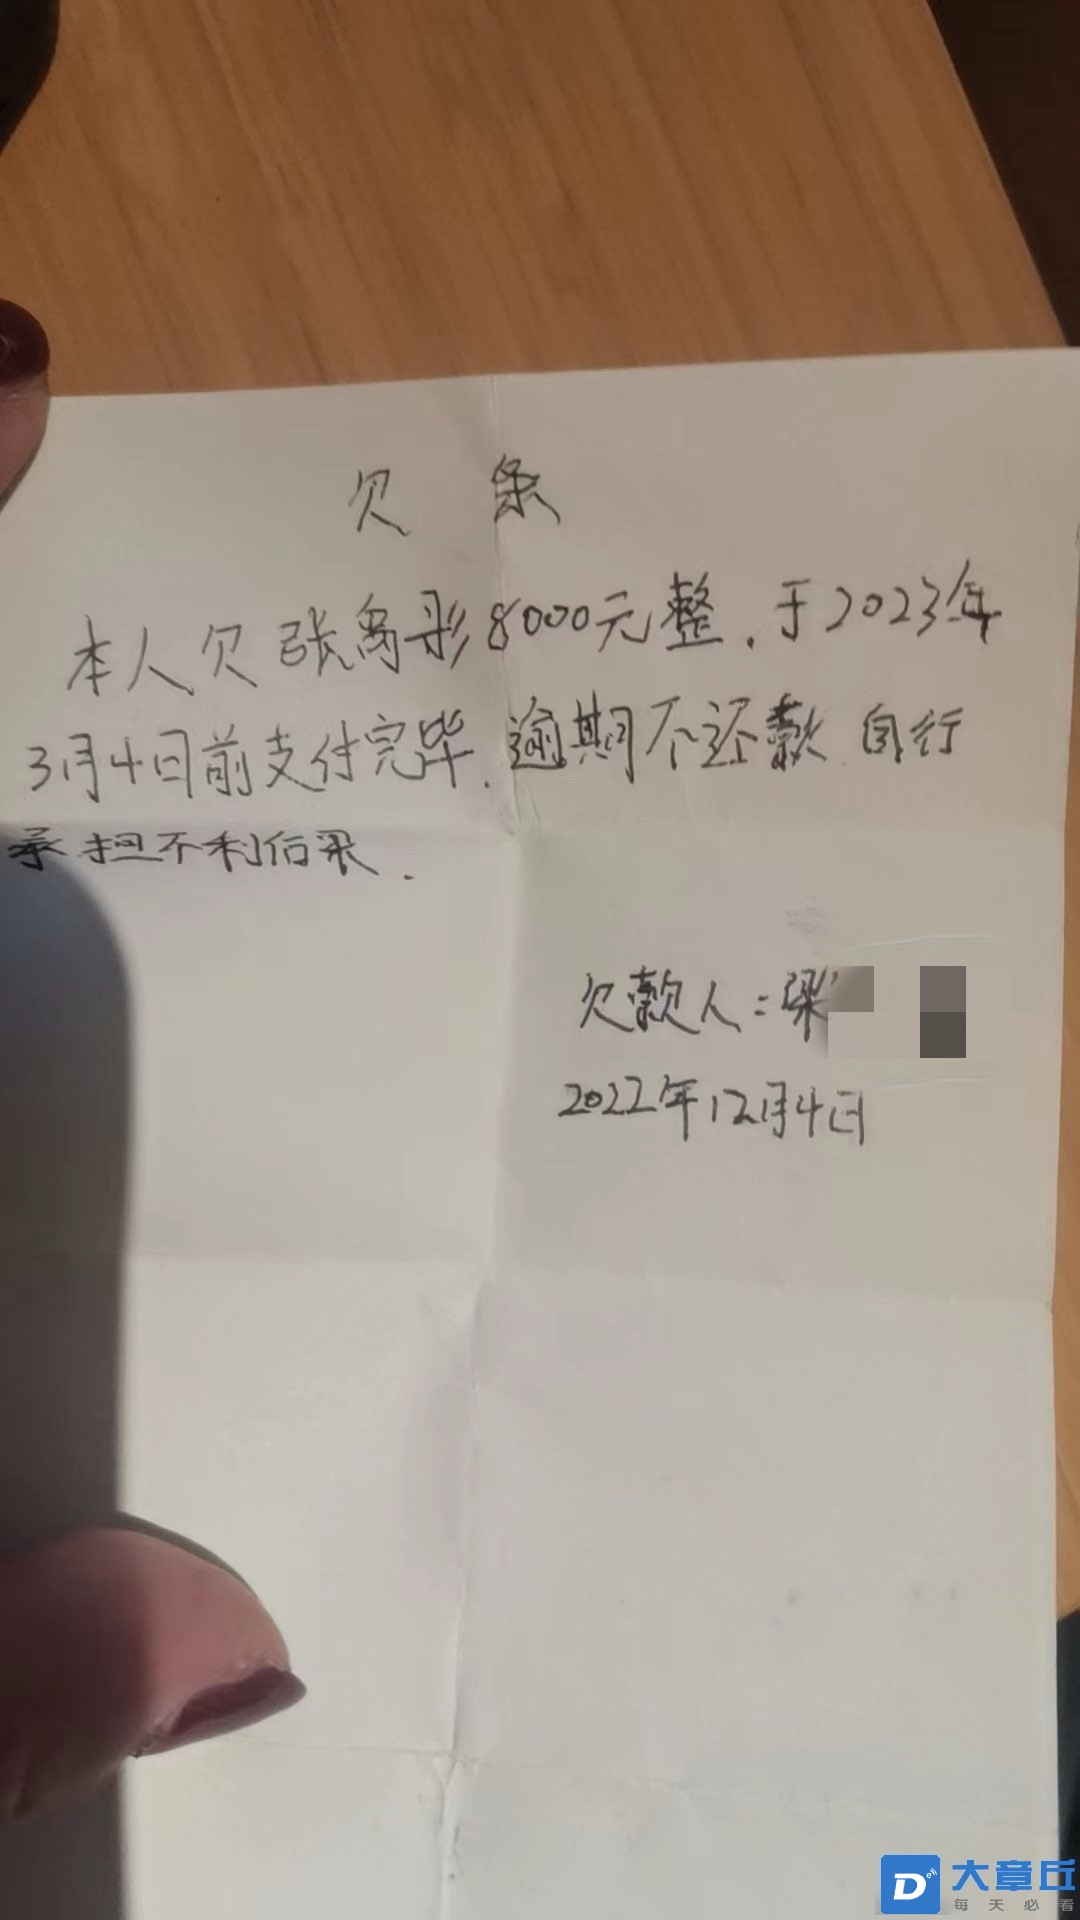 欠 条
本人欠张彤8000元整.于2023年
3月4日前支付完毕.逾期不还款 自行
承担不利后果.
欠款人:梁
2022年12月4日
大章丘
每天必看